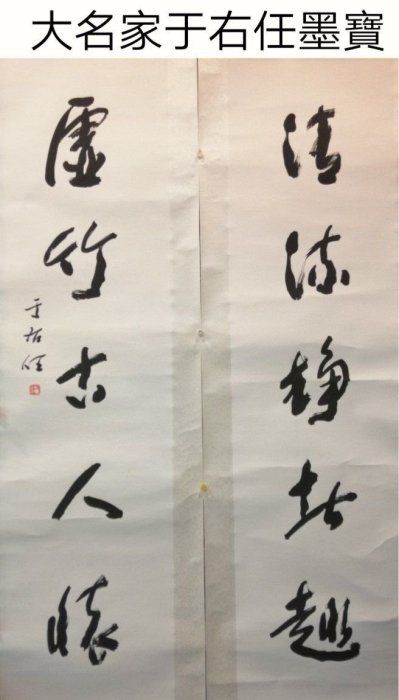 大名家于右任墨寶
清流静者趣
虛竹古人懷
于右任